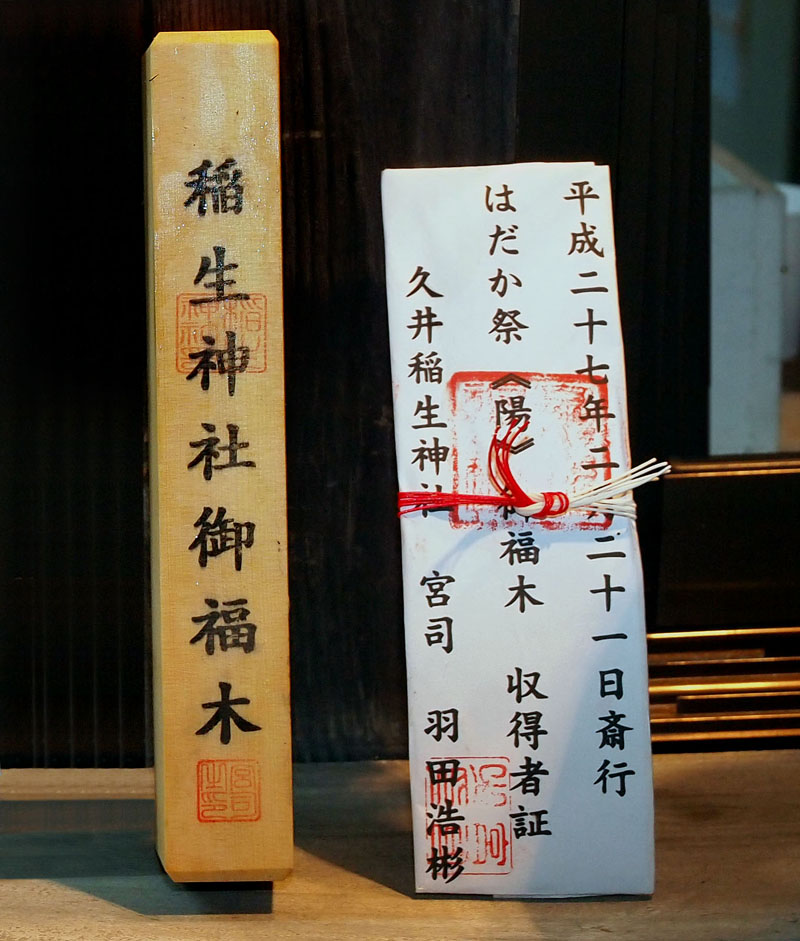 稲生神社御福木
宮司之印
平成二十七年二月二十一日斎行
はだか祭《陽》御福木 収得者証
久井稲生神社 宮司 羽田浩彬